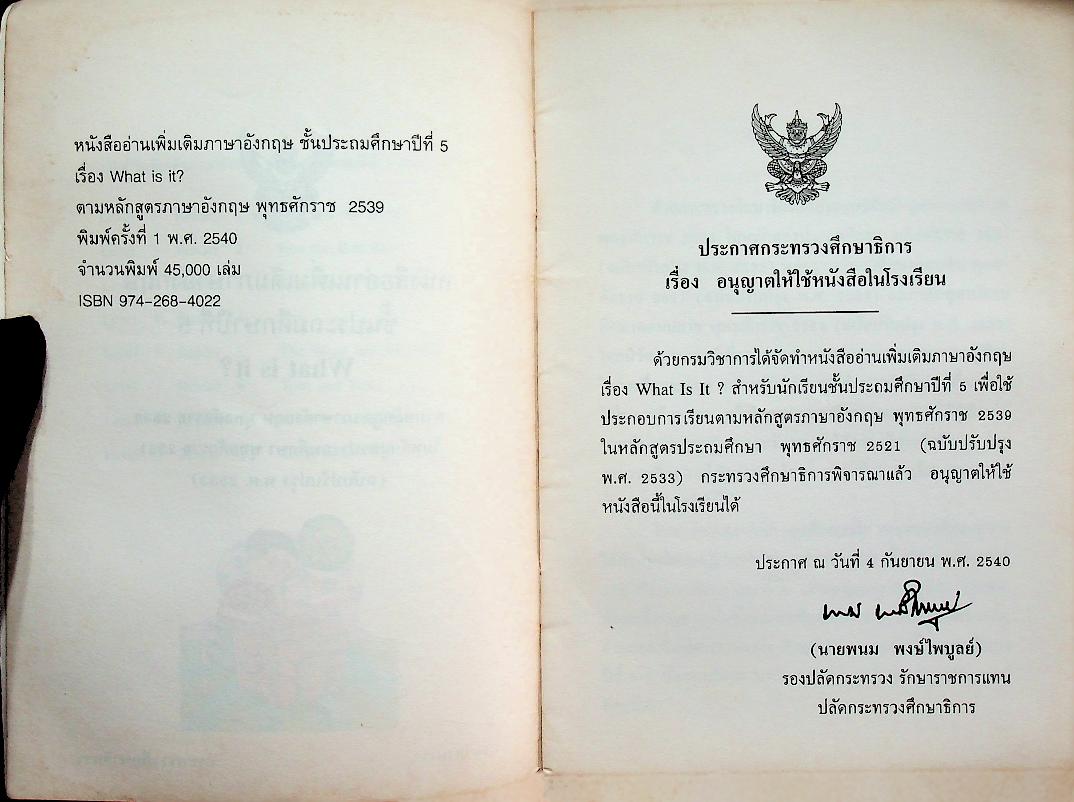 หนังสืออ่านเพิ่มเติมภาษาอังกฤษ ชั้นประถมศึกษาปีที่ 5
เรื่อง What is it?
ตามหลักสูตรภาษาอังกฤษ พุทธศักราช 2539
พิมพ์ครั้งที่ 1 พ.ศ. 2540
จำนวนพิมพ์ 45,000 เล่ม
ISBN 974-268-4022
ประกาศกระทรวงศึกษาธิการ
เรื่อง อนุญาตให้ใช้หนังสือในโรงเรียน
ด้วยกรมวิชาการได้จัดทำหนังสืออ่านเพิ่มเติมภาษาอังกฤษ
เรื่อง What Is It ? สำหรับนักเรียนชั้นประถมศึกษาปีที่ 5 เพื่อใช้
ประกอบการเรียนตามหลักสูตรภาษาอังกฤษ พุทธศักราช 2539
ในหลักสูตรประถมศึกษา พุทธศักราช 2521 (ฉบับปรับปรุง
พ.ศ. 2533) กระทรวงศึกษาธิการพิจารณาแล้ว อนุญาตให้ใช้
หนังสือนี้ในโรงเรียนได้
ประกาศ ณ วันที่ 4 กันยายน พ.ศ. 2540
(นายพนม พงษ์ไพบูลย์)
รองปลัดกระทรวง รักษาราชการแทน
ปลัดกระทรวงศึกษาธิการ